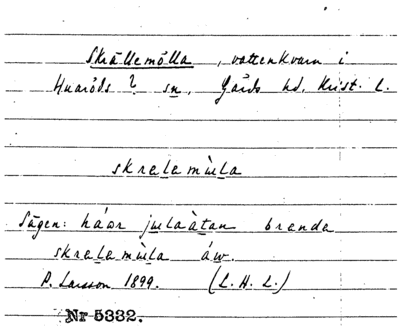 Skrällemölla, vattenkvarn i
Huaröds ? sn, Gärds hd, Krist. L.
skralamùla
Sägen: háar julaàtan branda
skralamùla áw.
P. Larsson 1899. (L. H. L.)
Nr 5332.